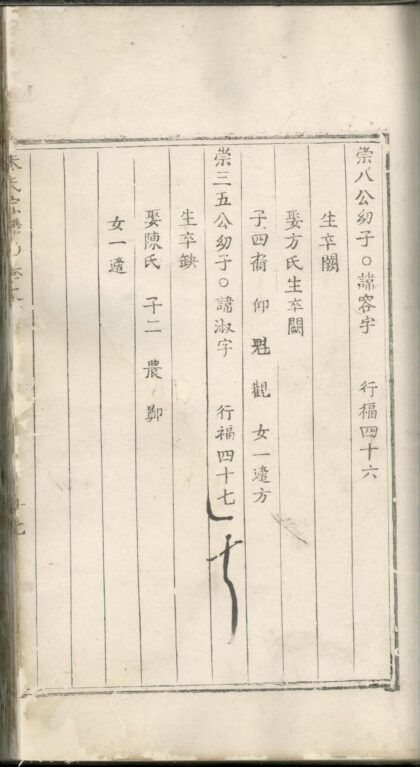 崇八公幼子○諱容字　行福四十六
生卒闕
娶方氏生卒闕
子四裔　仰　魁　觀　女一適方
崇三五公幼子○諱淑字　行福四十七
生卒缺
娶陳氏　子二　農　鄭
女一適
朱氏宗譜